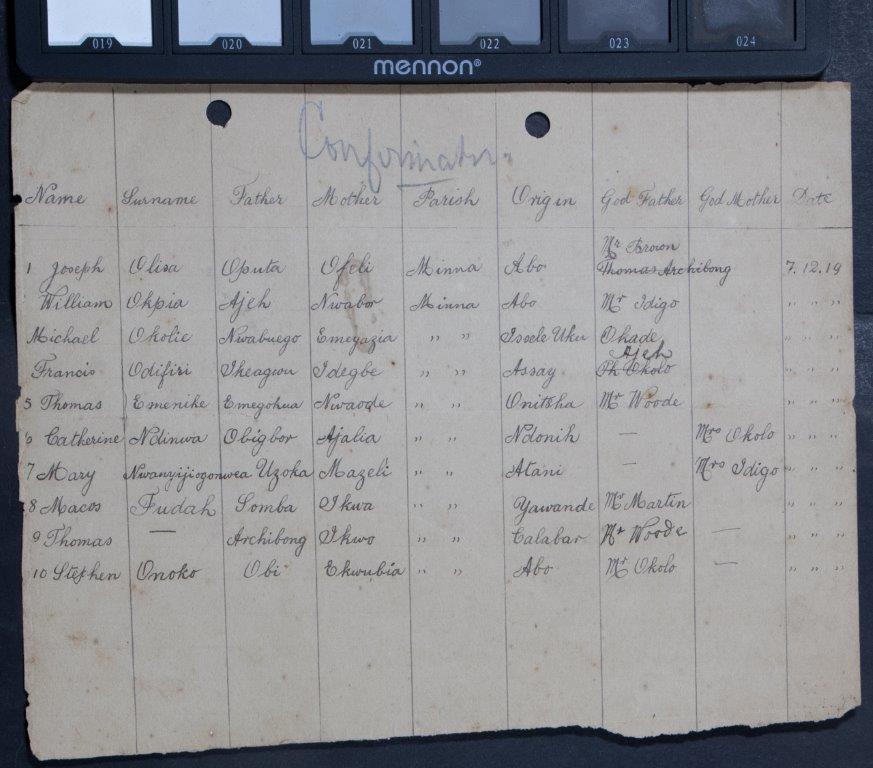 019 020 021 022 023 024
mennon®
Confirmation
Name Surname Father Mother Parish Origin God Father God Mother Date
Mr Brown
1 Joseph Olisa Oputa Ofeli Minna Abo Thomas Archibong 7.12.19
William Okpia Ajeh Nwabor Minna Abo Mr Idigo " " "
Michael Okolie Nwabuego Emeyazia " " Issele Uku Okade " " "
Ajeh
Francis Odifiri Ikeagwu Idegbe " " Assay Ph Okolo " " "
5 Thomas Emenike Emegokua Nwaode " " Onitsha Mr Woode " " "
6 Catherine Ndinwa Obigbor Ajalia " " Ndonih — Mrs Okolo " " "
7 Mary Nwanyijiogonwea Uzoka Mazeli " " Atani — Mrs Idigo " " "
8 Macos Fudah Somba Ikwa " " Yawande Mr Martin " " "
9 Thomas — Archibong Ikwo " " Calabar Mr Woode — " " "
10 Stephen Onoko Obi Ekwubia " " Abo Mr Okolo — " " "